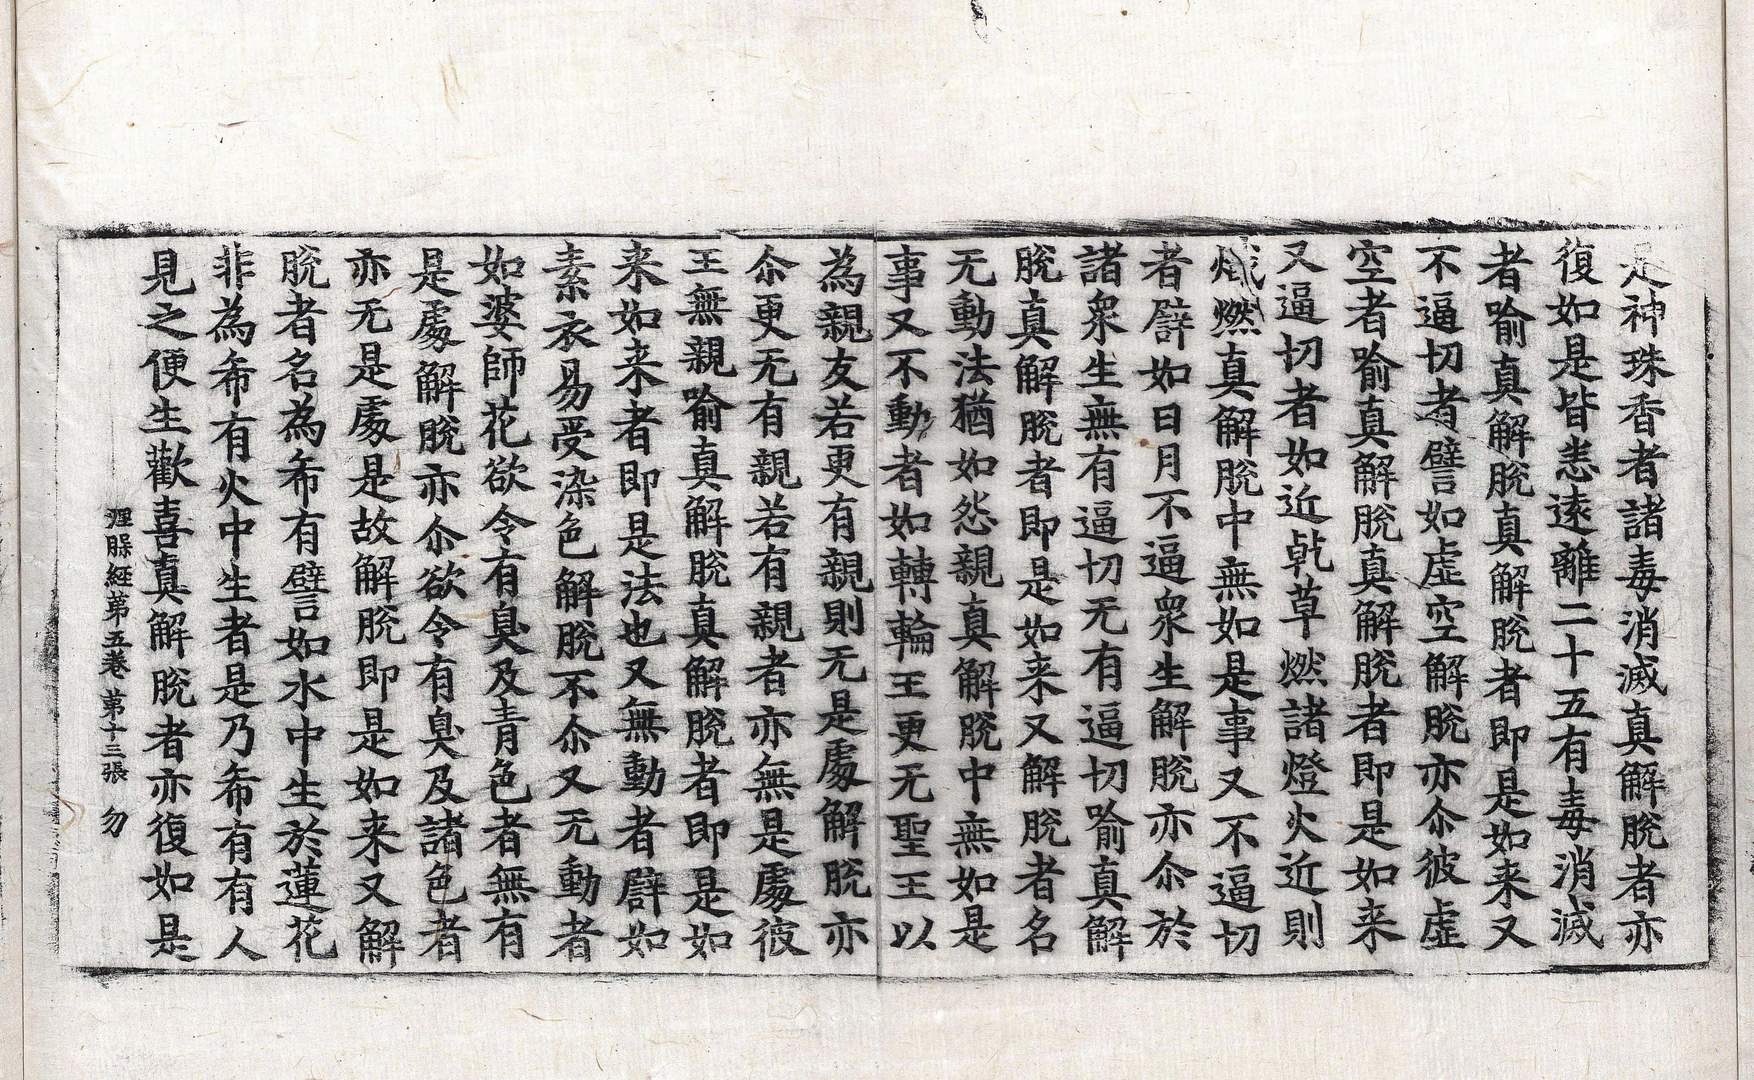 是神珠香者諸毒消滅真解脫者亦
復如是皆悉遠離二十五有毒消滅
者喻真解脫真解脫者即是如来又
不逼切者譬如虛空解脫亦尒彼虛
空者喻真解脫真解脫者即是如来
又逼切者如近乹草燃諸燈火近則
熾燃真解脫中無如是事又不逼切
者譬如日月不逼衆生解脫亦尒於
諸衆生無有逼切无有逼切喻真解
脫真解脫者即是如来又解脫者名
无動法猶如怨親真解脫中無如是
事又不動者如轉輪王更无聖王以
為親友若更有親則无是處解脫亦
尒更无有親若有親者亦無是處彼
王無親喻真解脫真解脫者即是如
来如来者即是法也又無動者譬如
素衣易受染色解脫不尒又无動者
如婆師花欲令有臭及青色者無有
是處解脫亦尒欲令有臭及諸色者
亦无是處是故解脫即是如来又解
脫者名為希有譬如水中生於蓮花
非為希有火中生者是乃希有有人
見之便生歡喜真解脫者亦復如是
涅槃経第五卷 第十三張 勿